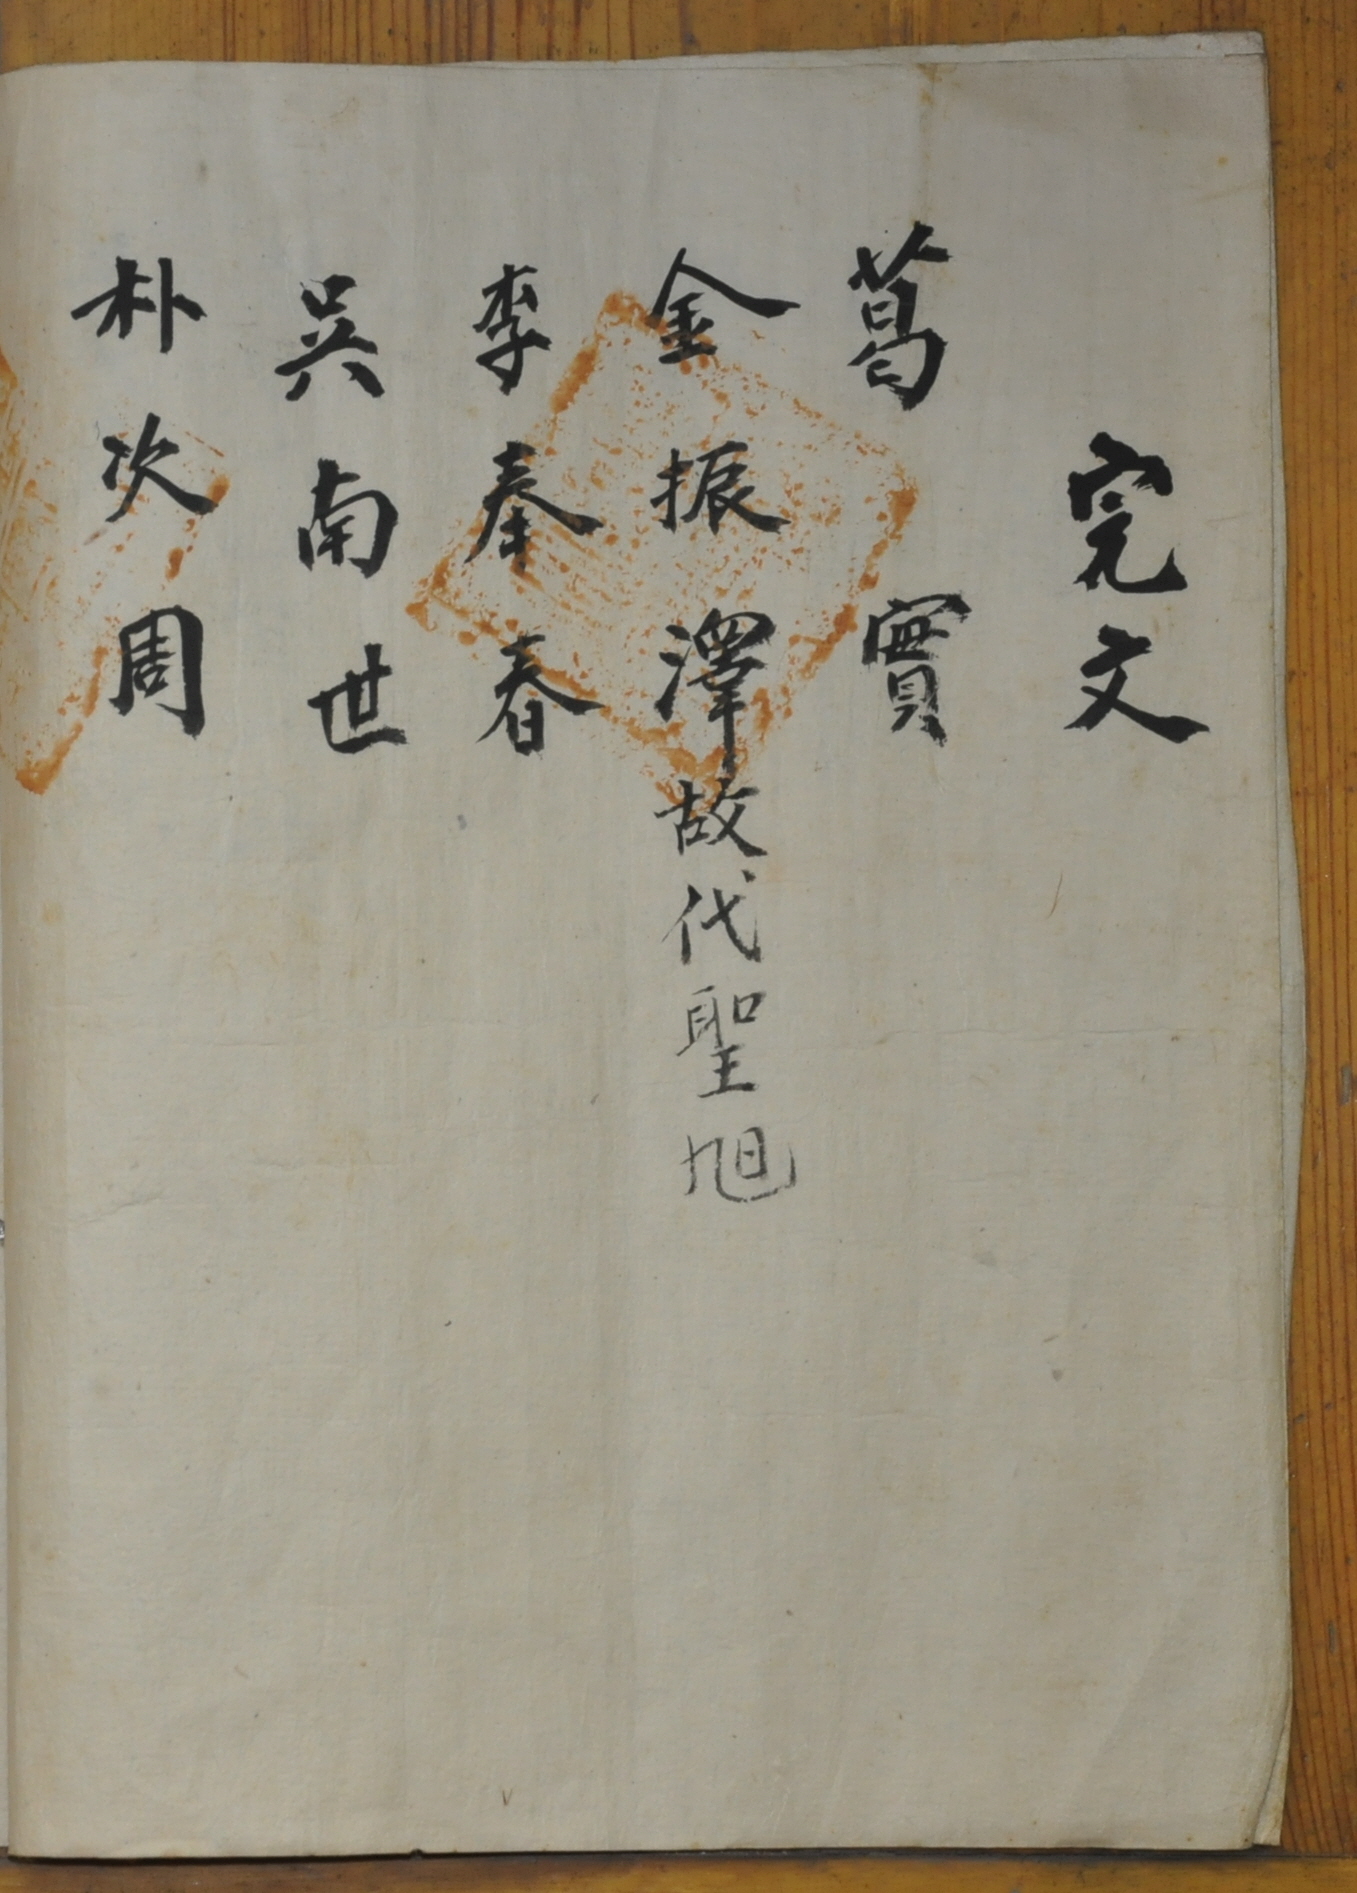 完文
葛實
金振澤故代聖旭
李奉春
吳南世
朴次周